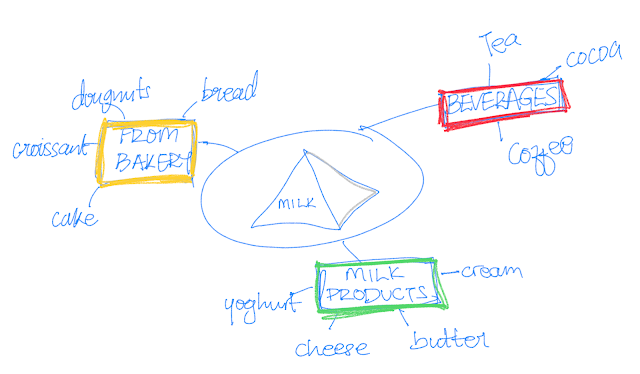 Tea
cocoa
BEVERAGES
coffee
dougnuts
bread
croissant
FROM
BAKERY
cake
MILK
MILK
PRODUCTS
cream
yoghurt
cheese
butter